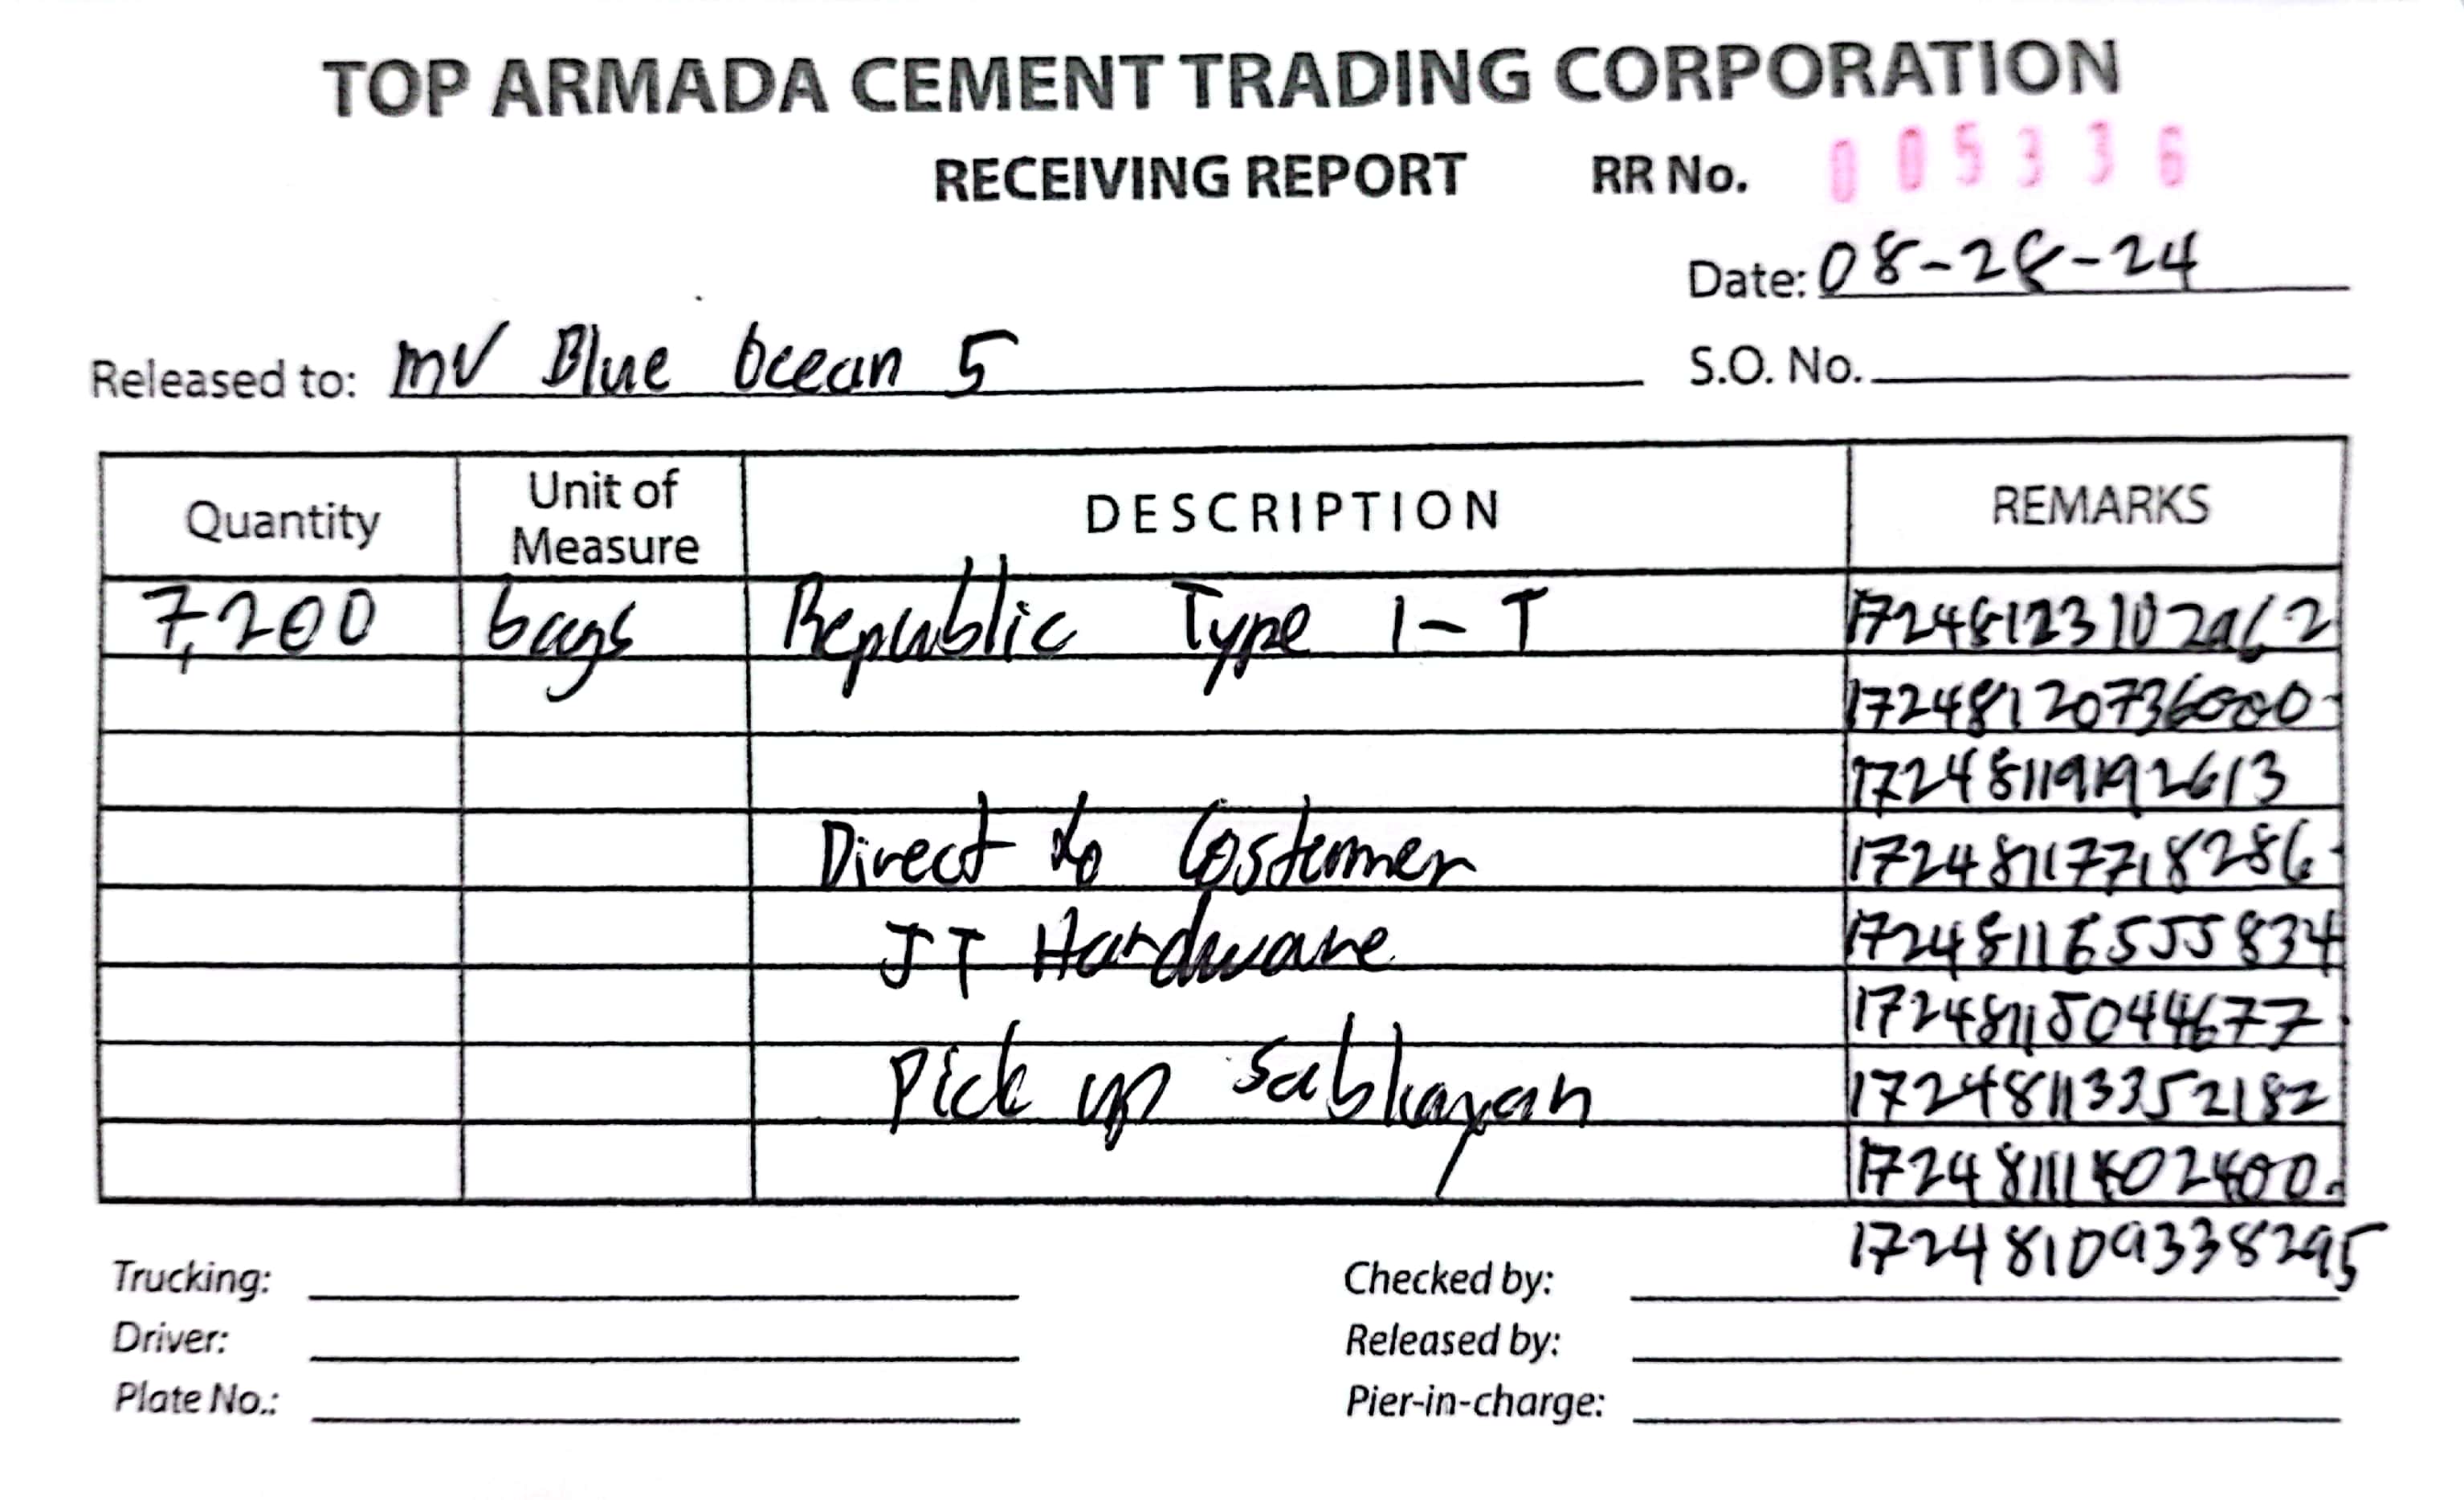 TOP ARMADA CEMENT TRADING CORPORATION
RECEIVING REPORT RR No. 005336
Date: 08-28-24
Released to: MV Blue Ocean 5 S.O. No.
Quantity Unit of Measure DESCRIPTION REMARKS
7,200 bags Republic Type 1-T 17248123102962
17248120736000
17248119192613
Direct to Costemmer 17248117718286
JT Hardware 17248116555834
17248115044677
Pick up Sablayan 17248113352182
17248111402400
17248109338295
Trucking: Checked by:
Driver: Released by:
Plate No.: Pier-in-charge: